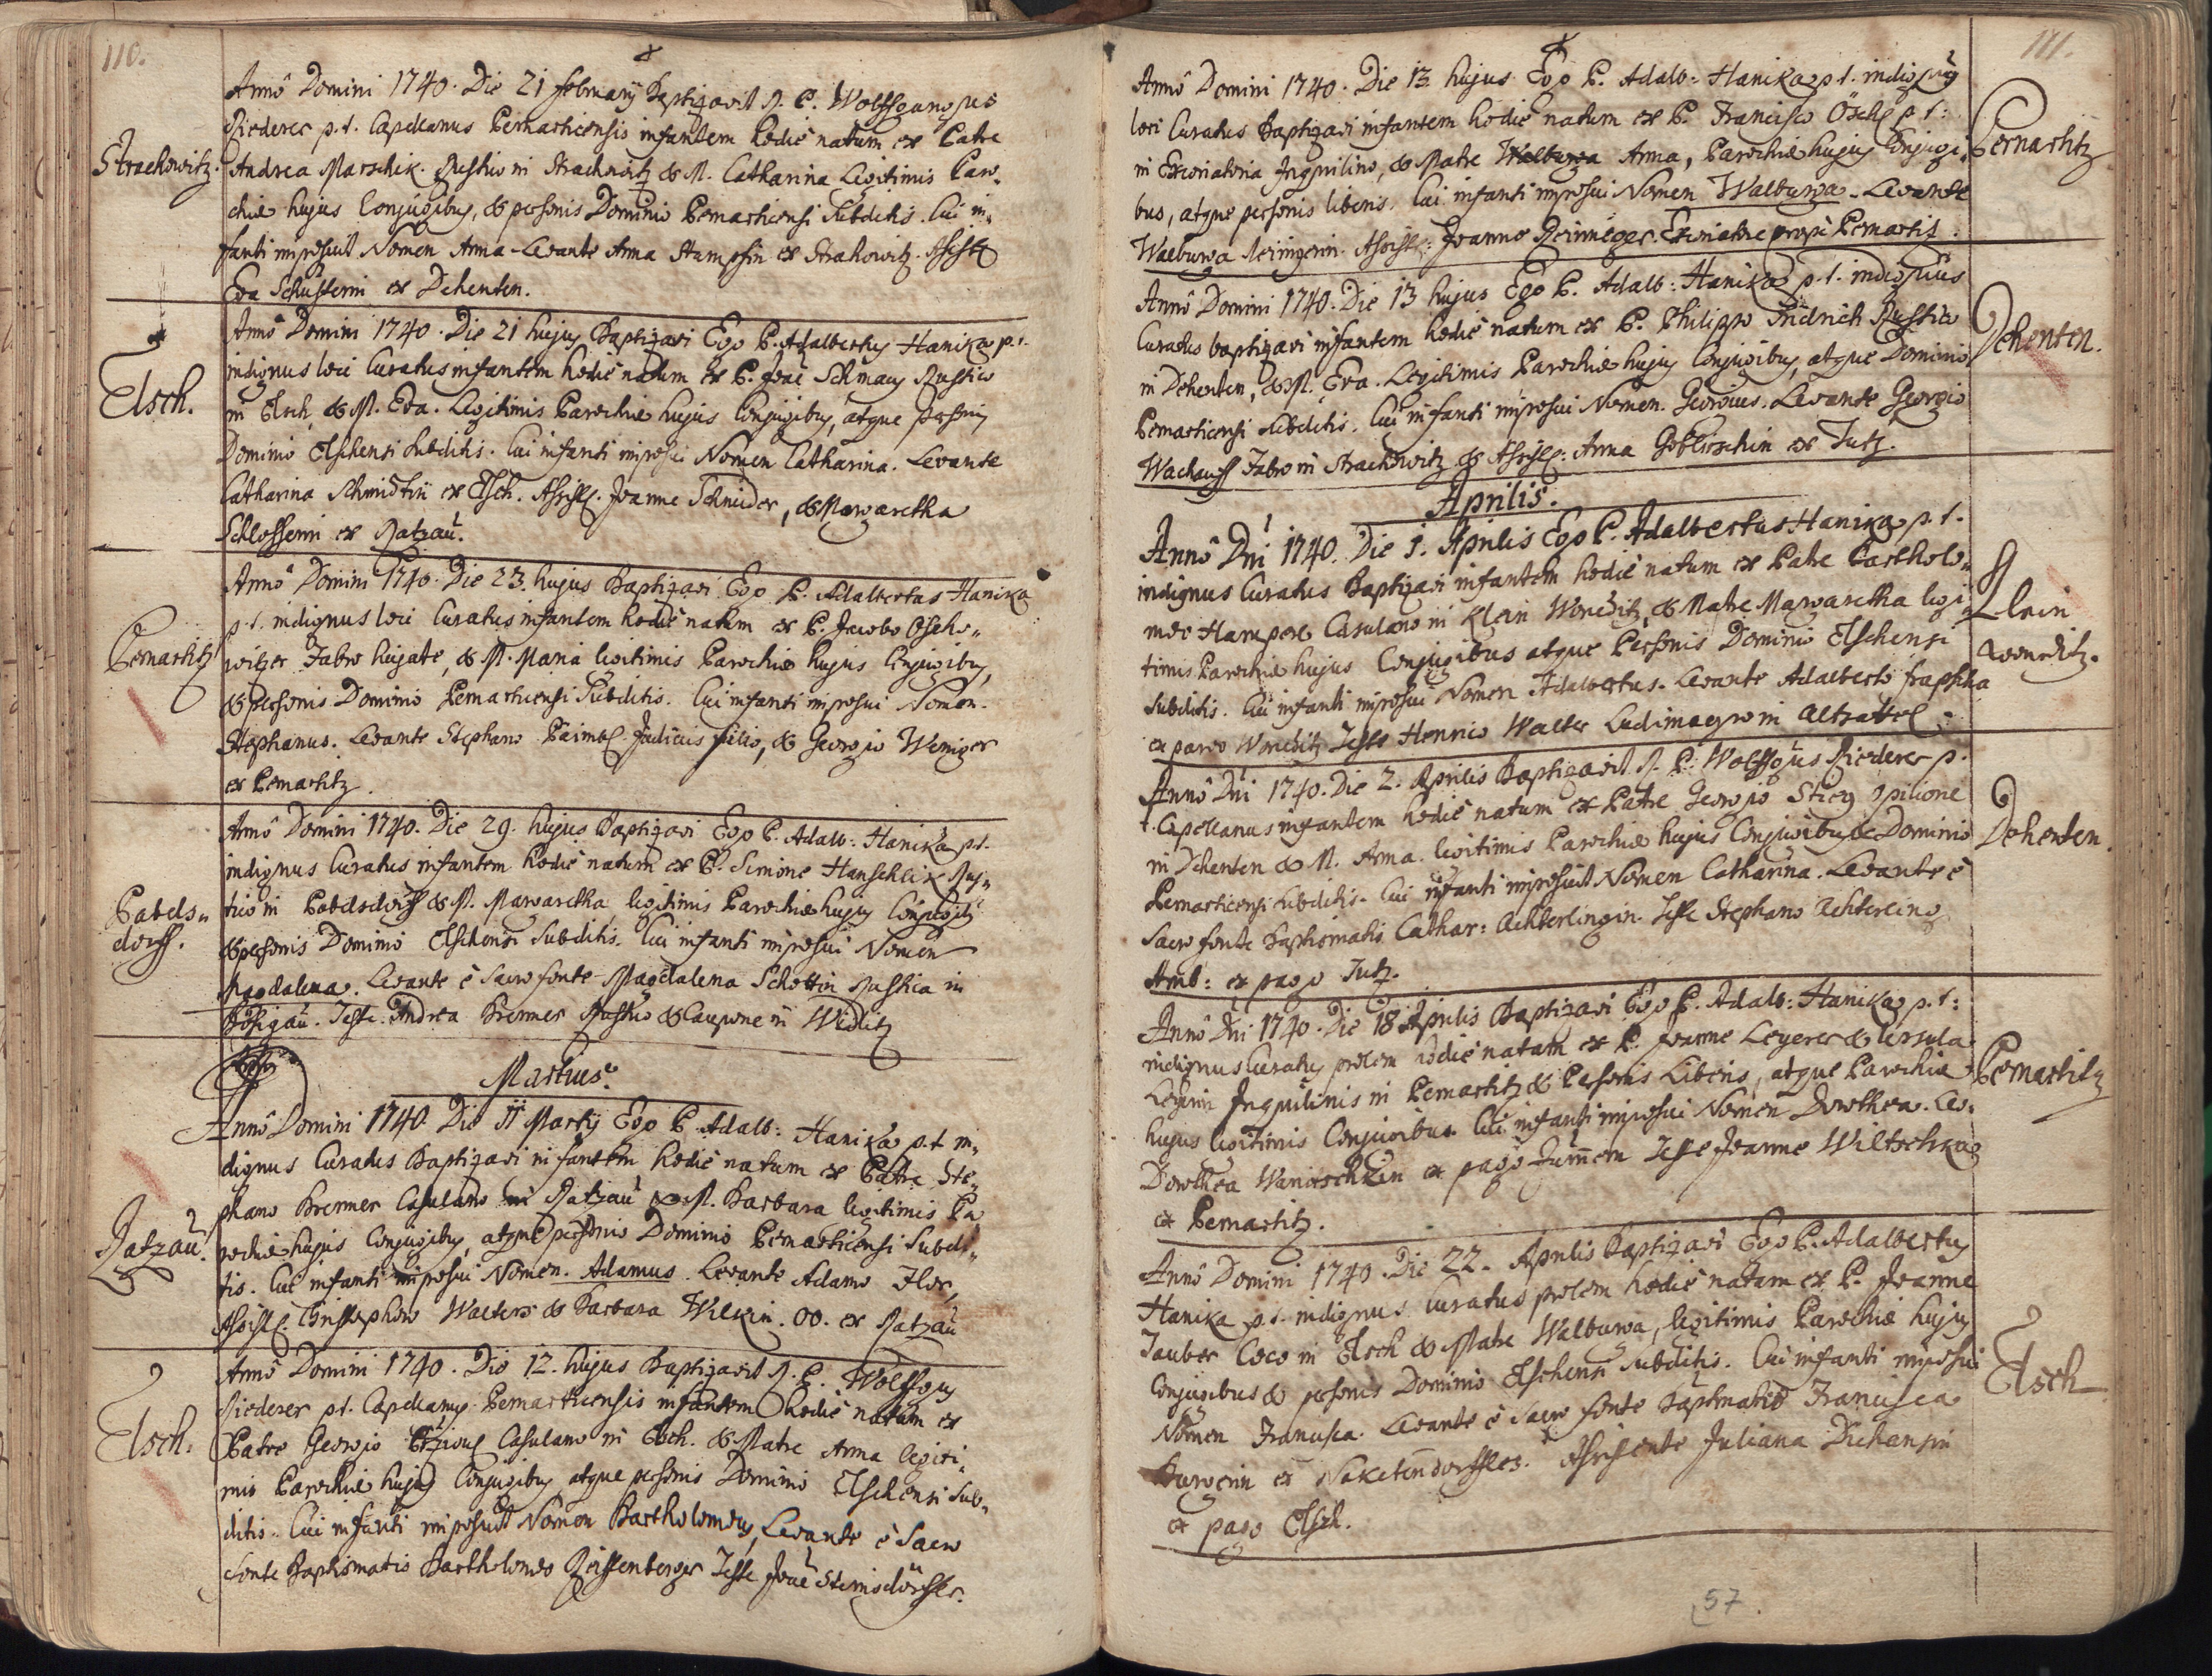 110.
Strachowitz.
Annô Domini 1740. Die 21 februarÿ Baptizavit R. P. Wolffgangus
Riederer p. t. Capellanus Pernarticensis infantem hodiè natum ex Patre
Andrea Marschik. Rustico in Strachowitz & M. Catharina Legitimis Paro-
chiæ hujus Conjugibus, & personis Dominio Pernarticensi Subditis. Cui in-
fanti imposuit Nomen Anna. Levante Anna Stumpfin ex Strahowitz. Assist:
Eva Schusterin ex Dehenten.
Elsch.
Annô Domini 1740. Die 21 hujus Baptizavi Ego P. Adalbertus Hanika p. t.
indignus loci Curatus infantem hodiè natum ex P. Joãe Schmaus Rustico
in Elsch, & M. Eva. Legitimis Parochiæ hujus Conjugibus, atque personis
Dominio Elschensi subditis. Cui infanti imposui Nomen Catharina. Levante
Catharina Schmidtin ex Elsch. Assist. Joanne Schneider, & Margaretha
Schlosserin ex Ratzau.
Pernartitz
Annô Domini 1740. Die 23. hujus Baptizavi Ego P. Adalbertus Hanika
p. t. indignus loci Curatus infantem hodiè natum ex P. Jacobo Oscho-
witzer Fabro hujate, & M. Maria legitimis Parochiæ hujus Conjugibus,
& personis Dominio Pernarticensi Subditis. Cui infanti imposui Nomen.
Stephanus. Levante Stephano Paimbl Judicis filio, & Georgio Weniger
ex Pernartitz.
Pabels-
dorff.
Annô Domini 1740. Die 29. hujus Baptizavi Ego P. Adalb: Hanika p. t.
indignus Curatus infantem hodiè natum ex P. Simone Hanschlik Rus-
tico in Pabelsdorff & M. Margaretha legitimis Parochiæ hujus Conjugibus
& personis Dominio Elschensi Subditis. Cui infanti imposui Nomen
Magdalena. Levante è Sacro fonte Magdalena Schottin Rustica in
Teste Andrea Brenner Rustico & Caupone in Widlitz
Martius.
Ratzau.
Annô Domini 1740. Die 11 Martÿ Ego P. Adalb: Hanika p. t. in-
dignus Curatus Baptizavi infantem hodiè natum ex Patre Ste-
phano Brenner Casulano in Ratzau & M. Barbara legitimis Pa
rochiæ hujus Conjugibus, atque personis Dominio Pernarticensi Subdi-
tis. Cui infanti imposui Nomen. Adamus. Levante Adamo Flor,
Assist. Christophoro Walters & Barbara Wilkin. OO. ex Ratzau
Elsch.
Annô Domini 1740. Die 12. hujus Baptizavit R. P. Wolffgus
Riederer p. t. Capellanus Pernarticensis infantem hodiè natum ex
Patre Georgio Casulano in Elsch. & Matre Anna legiti-
mis Parochiæ hujus Conjugibus atque personis Dominio Elschensi Sub-
ditis. Cui infanti imposuit Nomen Bartholomæus, Levante è Sacro
fonte Baptismatis Bartholomæo Reissenberger Teste Joãe Steinsdörffer.
111.
Pernartitz
Annô Domini 1740. Die 13. hujus Ego P. Adalb: Hanika p. t. indignus
loci Curatus Baptizavi infantem hodiè natum ex P. Francisco Ösch p. t:
in Excoriatoria Inquilino, & Matre Walburga Anna, Parochiæ hujus Conjugi-
bus, atque personis liberis. Cui infanti imposui Nomen Walburga. Levante
Walburga Assist: Joanne Excoriatore propè Pernartit.
Dehenten.
Annô Domini 1740. Die 13 hujus Ego P. Adalb: Hanika p. t. indignus
Curatus baptizavi infantem hodiè natum ex P. Philippo Fridrich Rustico
in Dehenten, & M. Eva. Legitimis Parochiæ hujus Conjugibus, atque Dominio
Pernarticensi subditis. Cui infanti imposui Nomen. Georgius. Levante Georgio
Wachauff Fabro in Strachowitz & Assist: Anna Goblirschin ex Tutz.
Aprilis.
Klein
Wonetitz.
Annô Dni 1740. Die 1. Aprilis Ego P. Adalbertus Hanika p. t.
indignus Curatus Baptizavi infantem hodiè natum ex Patre Bartholo-
mæo Hamperl Casulano in Klein Wonetitz, & Matre Margaretha legi-
timis Parochiæ hujus Conjugibus atque Personis Dominio Elschensi
Subditis. Cui infanti imposui Nomen Adalbertus. Levante Adalberto
ex parvo Wonetitz Teste Henrico Walter Ludimagro in Altzattel.
Dehenten.
Annô Dni 1740. Die 2. Aprilis Baptizavit R. P. Wolffgus Riederer p.
t. Capellanus infantem hodiè natum ex Patre Georgio Stieg opilione
in Dehenten & M. Anna. legitimis Parochiæ hujus Conjugibus & Dominio
Pernarticensi subditis. Cui infanti imposuit Nomen Catharina. Levante è
Sacro fonte Baptismatis Cathar: Achterlingin. Teste Stephano Achterling
Amb: ex pago Tutz.
Pernartitz
Annô Dni 1740. Die 18 Aprilis Baptizavi Ego P. Adalb: Hanika p. t:
indignus Curatus prolem hodiè natam ex P. Joanne Leyerer & Ursula
Inquilinis in Pernartitz & Personis Liberis, atque Parochiæ
hujus legitimis Conjugibus. Cui infanti imposui Nomen Dorothea. Lev:
Dorothea Wanieschkin ex pago Teste Joanne Wiltschka
ex Pernartitz.
Elsch
Annô Domini 1740. Die 22. Aprilis Baptizavi Ego P. Adalbertus
Hanika p. t. indignus Curatus prolem hodiè natam ex P. Joanne
Tauber Coco in Elsch & Matre Walburga, legitimis Parochiæ hujus
Conjugibus & personis Dominio Elschensi Subditis. Cui infanti imposui
Nomen Francisca. Levante è Sacro fonte Baptismatis Francisca
Burgerin ex Assistente Juliana
ex pago Elsch.
57